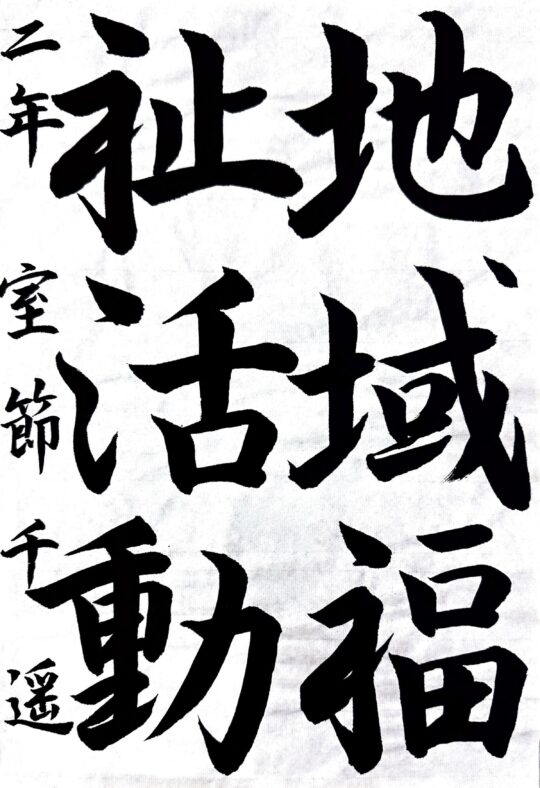 地域福
祉活動
二年 室節千遥